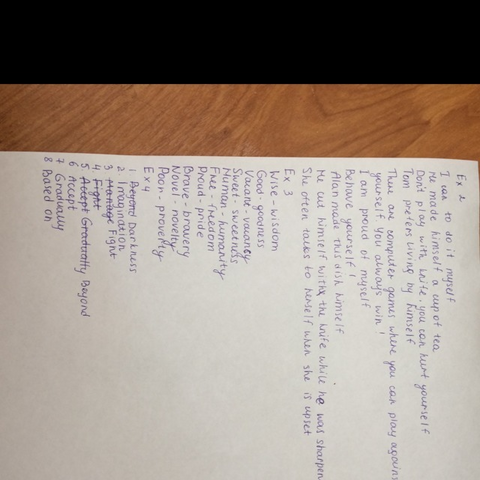 Ex 2
I can to do it myself
He made himself a cup of tea
Don't play with knife, you can hurt yourself
Tom prefers living by himself
There are computer games where you can play agains
yourself you always win!
I am proud of myself
Behave yourself!
Alan made this dish himself
He cut himself with the knife while he was sharpen
She often talks to herself when she is upset
Ex 3
Wise - wisdom
Good - goodness
Vacane - vacaney
Sweet - sweetness
Human - humanity
Free - freedom
Proud - pride
Brave - bravery
Novel - novelty
Poor - provelty
Ex 4
1 Beyond Darkness
2 Imagination
3 Fight
4 Fight
5 Accept Gradually Beyond
6 Accept
7 Gradually
8 Based on